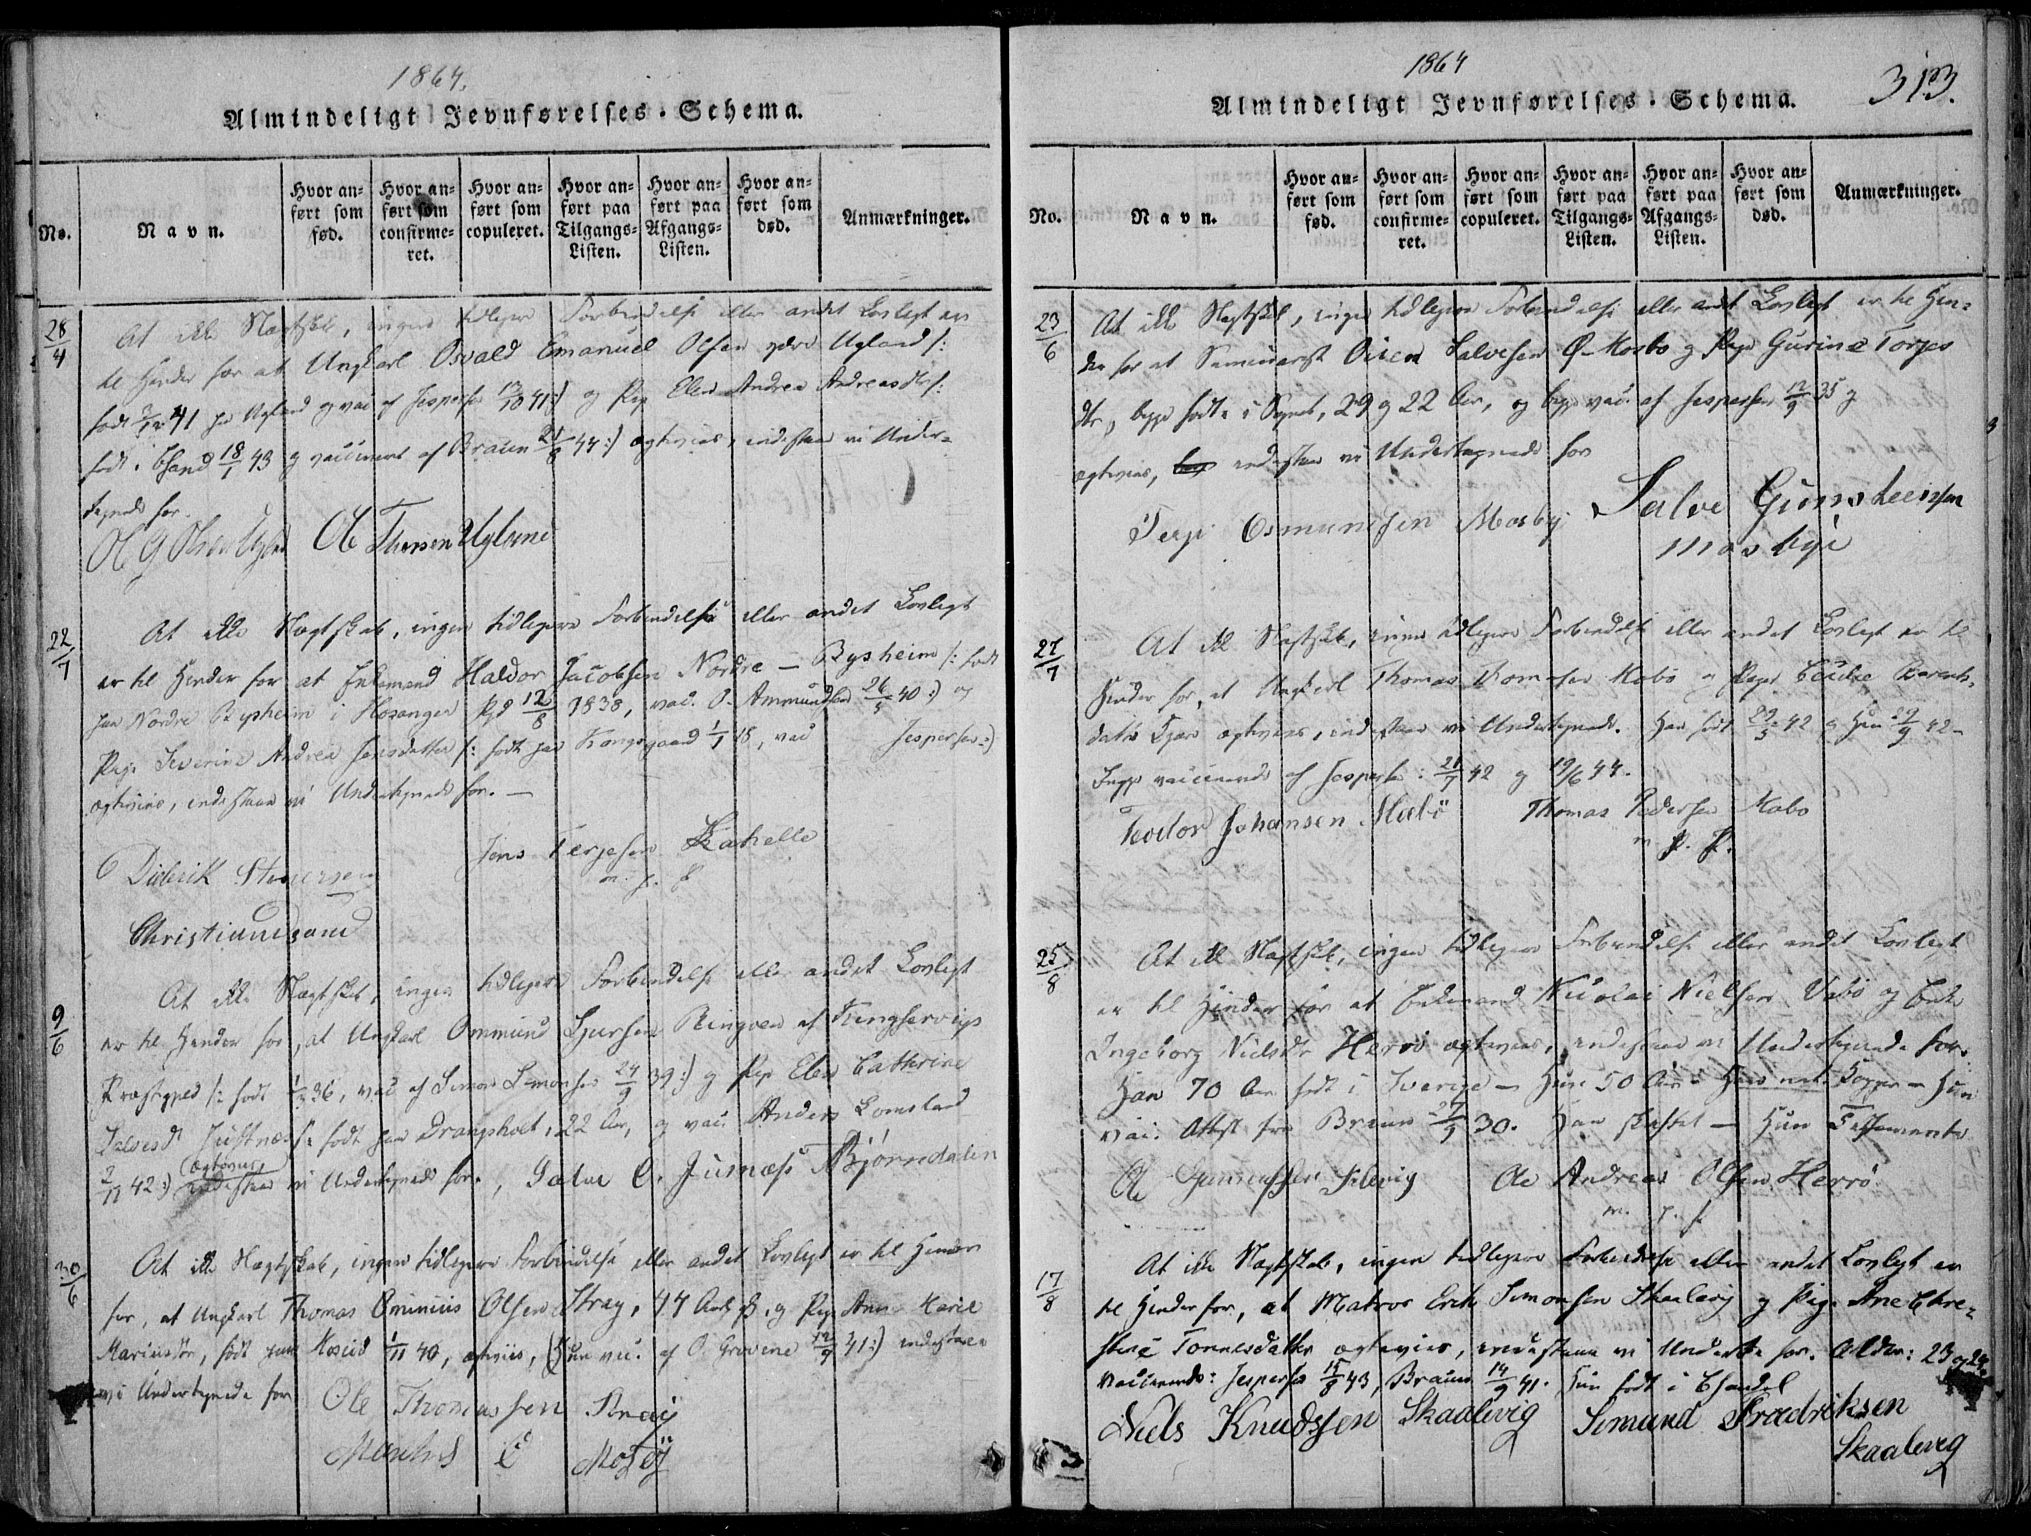 1864.
Almindeligt Jevnførelses-Schema.
No.
Navn.
Hvor anført som fød.
Hvor anført som confirmeret.
Hvor anført som copuleret.
Hvor anført paa Tilgangs-Listen.
Hvor anført paa Afgangs-Listen.
Hvor anført som død.
Anmærkninger.
28/4
At ikke Slægtskab, ingen tidligere Forbindelse eller andet Lovligt er
til Hinder for at Ungkarl Osvald Emanuel Olsen ydre Ugland /:
født 41 paa Ugland og vac af Jespersen 41:) og Pige Elen Andrea Andreasdtr /:
født i Chsand 18/1 43 og vaccineret af Braun 21/8 44:) ægtevies, indestaae vi Under-
tegnede for.
O G Olsen Ugland Ole Thorsen Uglane
22/7
At ikke Slægtskab, ingen tidligere Forbindelse eller andet Lovligt
er til Hinder for at Enkemand Haldor Jacobsen Nordre - Bysheim /: født
paa Nordre Bysheim i Hosanger Pgd 12/8 1838, vac. O. Ammundsen 26/5 40:) og
Pige Severine Andrea Jensdatter /: født paa Kongsgaard 1/1 18, vac Jespersen :)
ægtevies, indestaae vi Undertegnede for. -
Jens Terjesen Kabelle
m. p. p
Diderik Stenersen
Christiansand
9/6
At ikke Slægtskab, ingen tidligere Forbindelse eller andet Lovligt
er til Hinder for, at Ungkarl Ommund Sjursen Ringøen af Kingservigs
Præstegjeld /: født 36, vac af Simon Simonsen 24/9 39:) og Pige Elen Cathrine
Salvesdt Justnæs /: født paa Drangsholt, 22 Aar, og vac Anders Lomsland
2/11 42:) ægtevies indestaae vi Undertegnede for., Salve O. Jusnæs Bjørnedalen
30/6
At ikke Slægtskab, ingen tidligere Forbindelse eller andet Lovligt er til Hinder
for, at Ungkarl Thomas Ominius Olsen Stray, 44 Aar, og Pige Anne Marie
Mariusdtr, født paa Mosid 1/11 40, ægtevies, (Hun vac. af O Grovene 12/9 41:) indestaae
vi Undertegnede for
Ole Thomassen Straÿ
E Mosbÿ
1864
313.
Almindeligt Jevnførelses-Schema.
No.
Navn.
Hvor anført som fød.
Hvor anført som confirmeret.
Hvor anført som copuleret.
Hvor anført paa Tilgangs-Listen.
Hvor anført paa Afgangs-Listen.
Hvor anført som død.
Anmærkninger.
23/6
At ikke Slægtskab, ingen tidligere Forbindelse eller andet Lovligt er til Hin-
der for at Seminarist Osien Salvesen Ø-Mosbø og Pige Gurine Torjes
dtr, begge fødte i Sognet, 29 og 22 Aar, og begge vac. af Jespersen 12/9 35 og
ægtevies, indestaae vi Undertegnede for
Terje Osmundsen Mosby. Salve Gunsteensen
mosbye
27/7
At ikke Slægtskab, ingen tidligere Forbindelse eller andet Lovligt er til
Hinder for, at Ungkarl Thomas Thomasen Kobo og Pige Cecilie Berents-
datter ægtevies, indestaae vi Undertegnede. Han født 29/5 42 og Hun 29/9 42-
Begge vaccinerede af Jespersen: 21/7 42 og 19/6 44.
Teodor Johansen Slæbö Thomas Pedersen Kobo
m. p. p.
25/8
At ikke Slægtskab, ingen tidligere Forbindelse eller andet Lovligt
er til Hinder for at Enkemand Nicolai Nielsen Vabö og Enke
Ingeborg Nielsdtr Herrö ægtevies, indestaae vi Undertegnede for.
Han 70 Aar født i Sverige - Hun 50 Aar - Kopper - Hun
vac. Attest fra Braun 30. Han skiftet - Hun Testamente
Ole Gunnufsen Kilevig Ole Andreas Olsen Herrö
m. p. p.
17/8
At ikke Slægtskab, ingen tidligere Forbindelse eller andet Lovligt er
til Hinder for, at Matros Erik Simonsen Skaalevig og Pige Ane Chre-
stine Tønnesdatter ægtevies, indestaae vi Undertegnede for. Alder: 23 og 24
vaccinerede: Jespersen 15/8 43, Braun 14/9 41. Hun født i Chsand
Niels Knudssen Skaalevig Simund Frædriksen
Skaalevig